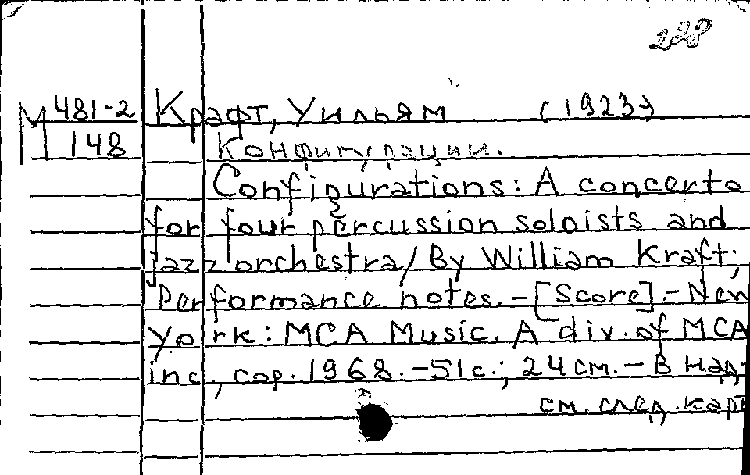 238
М 481-2 Крафт, Уильям (1923)
148 Конфигурации.
Configurations: A concerto
for four percussion soloists and
jazz orchestra/ By William Kraft;
Performance notes. - [Score]. - New
York: MCA Music. A div. of MCA
inc, cop. 1968. - 51с.; 24см. - В над-
см. след. карт